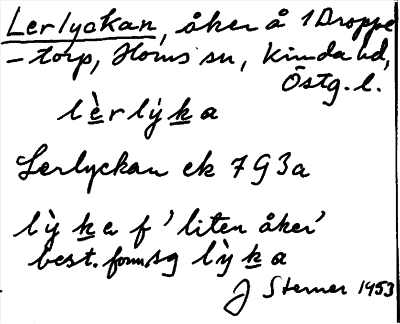 Lerlyckan, åker å 1 Droppe
-torp, Horns sn, Kinda hd,
Östg. l.
lὲrlỳka
Lerlyckan ek 7G3a
lỳka f 'liten åker'
best. form sg lỳka
J Sterner 1953